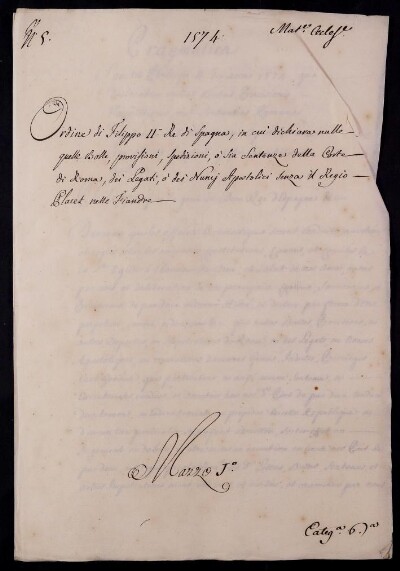 N.° 5.
1574.
Mat.ᵉ Eccles.ᵉ
Ordine di Filippo II° Re di Spagna, in cui dichiara nulle
quelle Bolle, provisioni, spedizioni, ò sia Sentenze della Corte
di Roma, dei Legati, ò dei Nunzij Apostolici senza il Regio
Placet nelle Fiandre
Mazzo 1.°
Categ.ᵃ 6.ᵃ